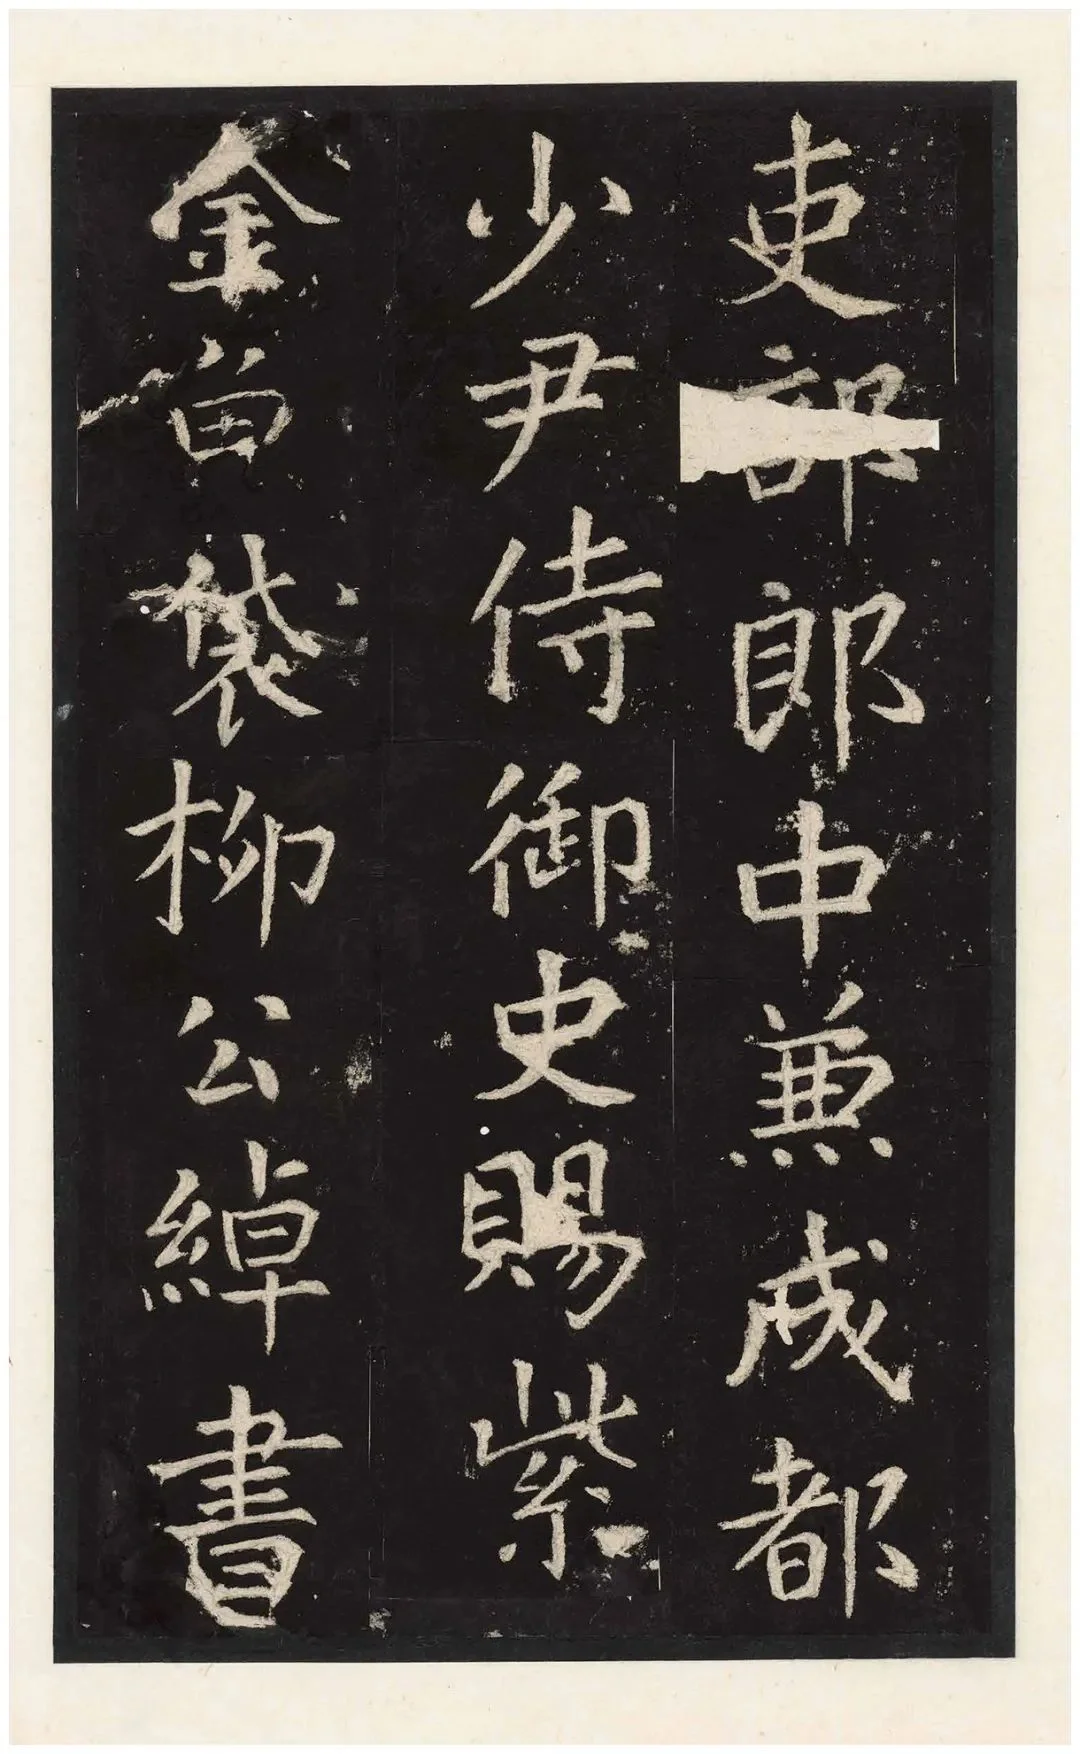 吏部郎中兼成都
少尹侍御史賜紫
金魚袋柳公綽書